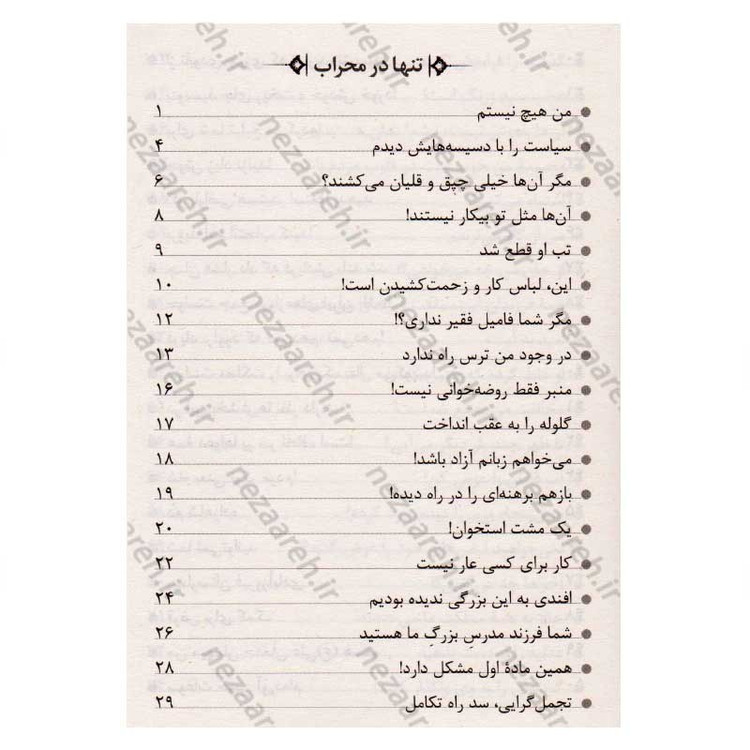 تنها در محراب
من هیچ نیستم ۱
سیاست را با دسیسه‌هایش دیدم ۴
مگر آن‌ها خیلی چپق و قلیان می‌کشند؟ ۶
آن‌ها مثل تو بیکار نیستند! ۸
تب او قطع شد ۹
این، لباس کار و زحمت‌کشیدن است! ۱۰
مگر شما فامیل فقیر نداری؟! ۱۲
در وجود من ترس راه ندارد ۱۳
منبر فقط روضه‌خوانی نیست! ۱۶
گلوله را به عقب انداخت ۱۷
می‌خواهم زبانم آزاد باشد! ۱۸
بازهم برهنه‌ای را در راه دیده! ۱۹
یک مشت استخوان! ۲۰
کار برای کسی عار نیست ۲۲
افندی به این بزرگی ندیده بودیم ۲۴
شما فرزند مدرسِ بزرگِ ما هستید ۲۶
همین مادهٔ اول مشکل دارد! ۲۸
تجمل‌گرایی، سد راه تکامل ۲۹
nezaareh.ir